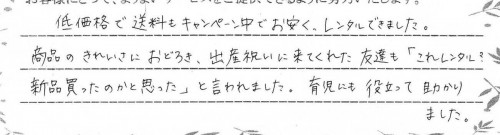 低価格で送料もキャンペーン中でお安く、レンタルできました。
商品のきれいさにおどろき、出産祝いに来てくれた友達も「これレンタル？
新品買ったのかと思った」と言われました。育児にも役立って助かり
ました。